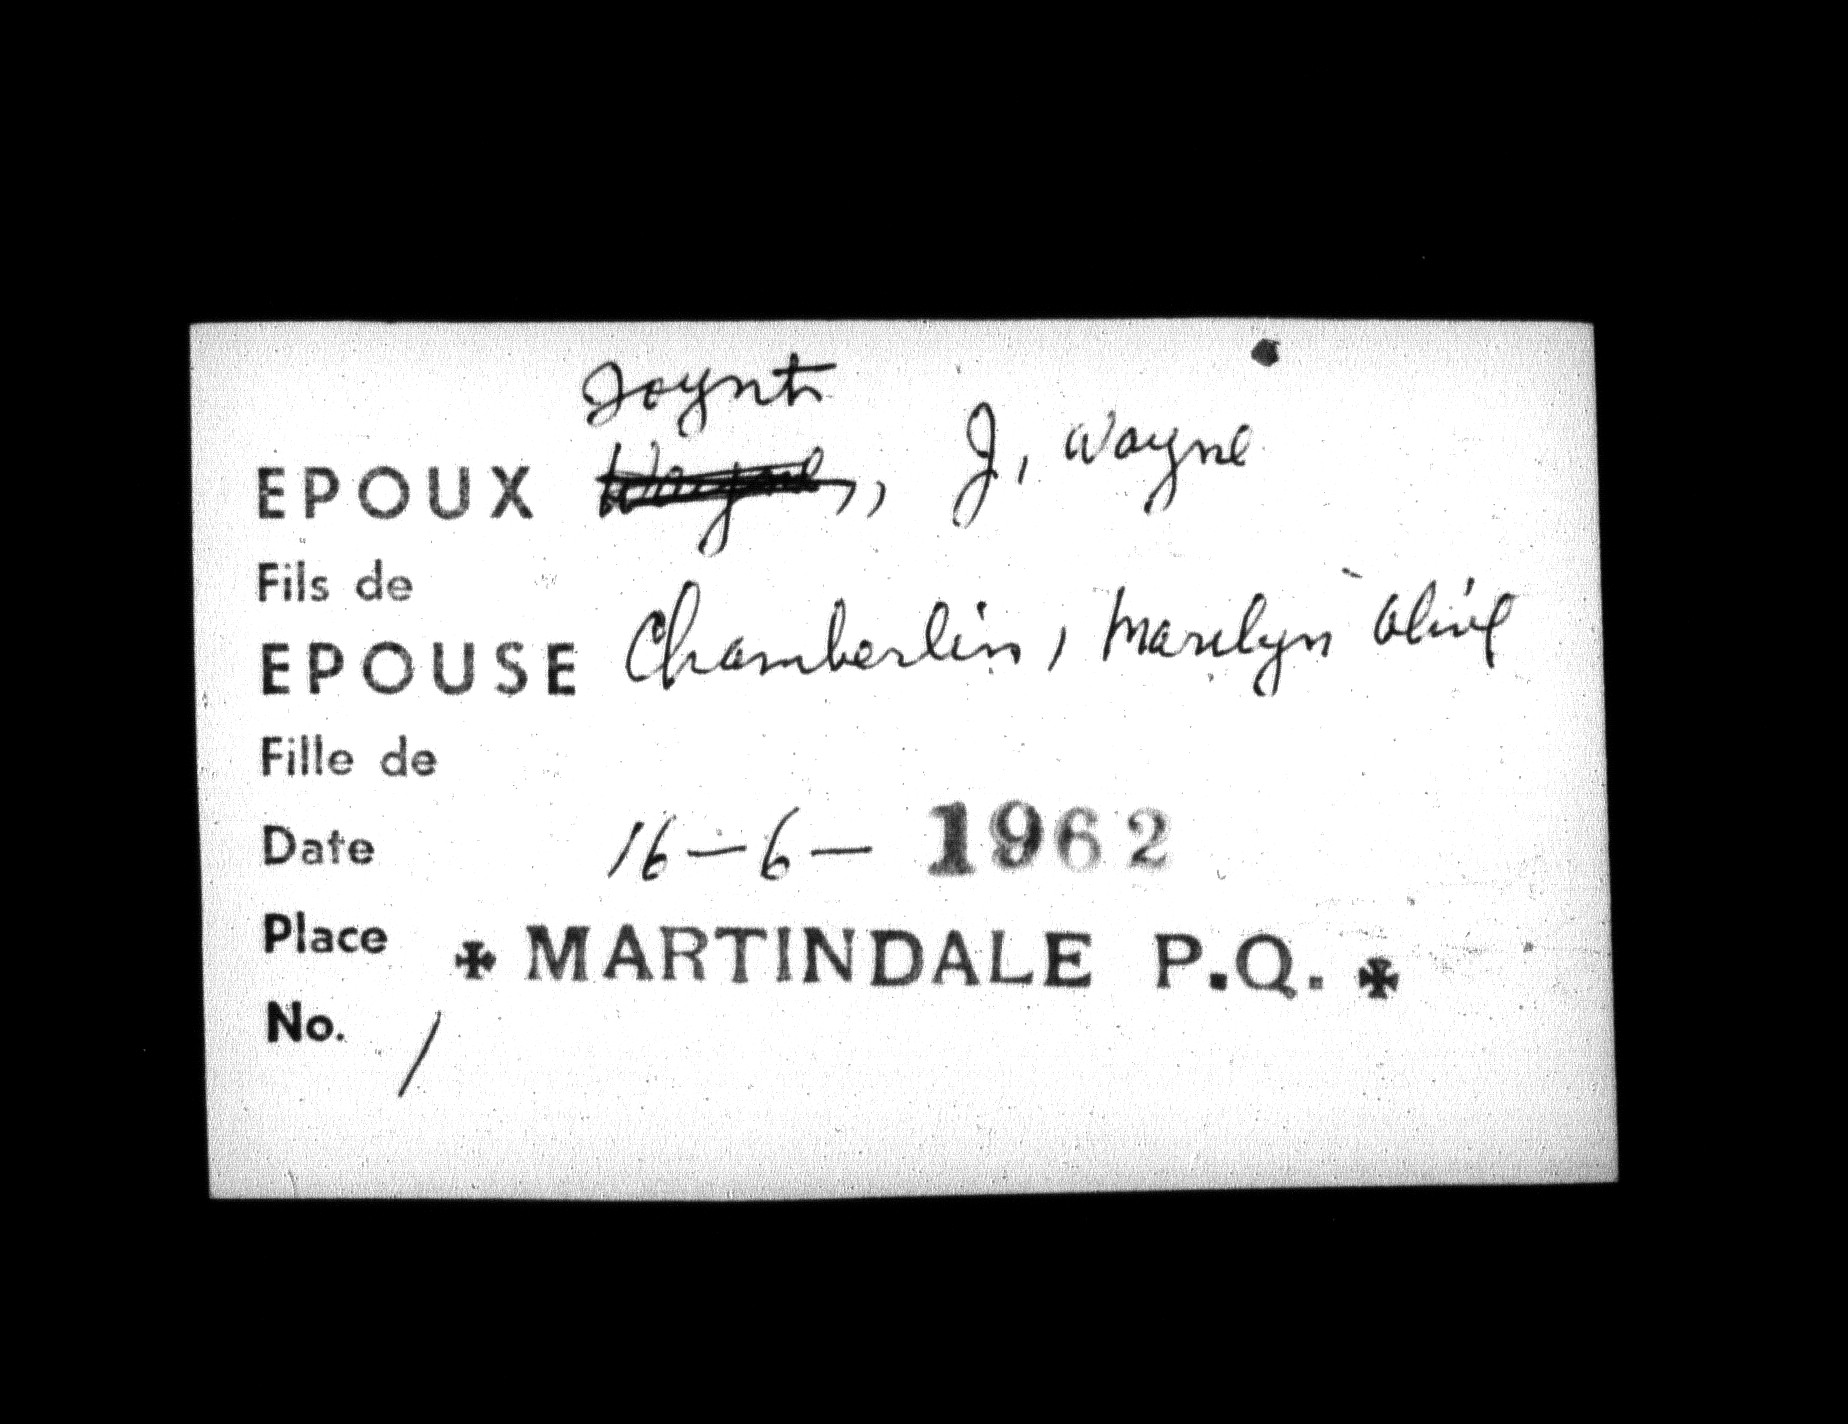 Joynt
EPOUX Wayne,, J, Wayne
Fils de
EPOUSE Chamberlin, Marilyn Olive
Fille de
Date 16-6- 1962
Place ✠ MARTINDALE P.Q. ✠
No. 1